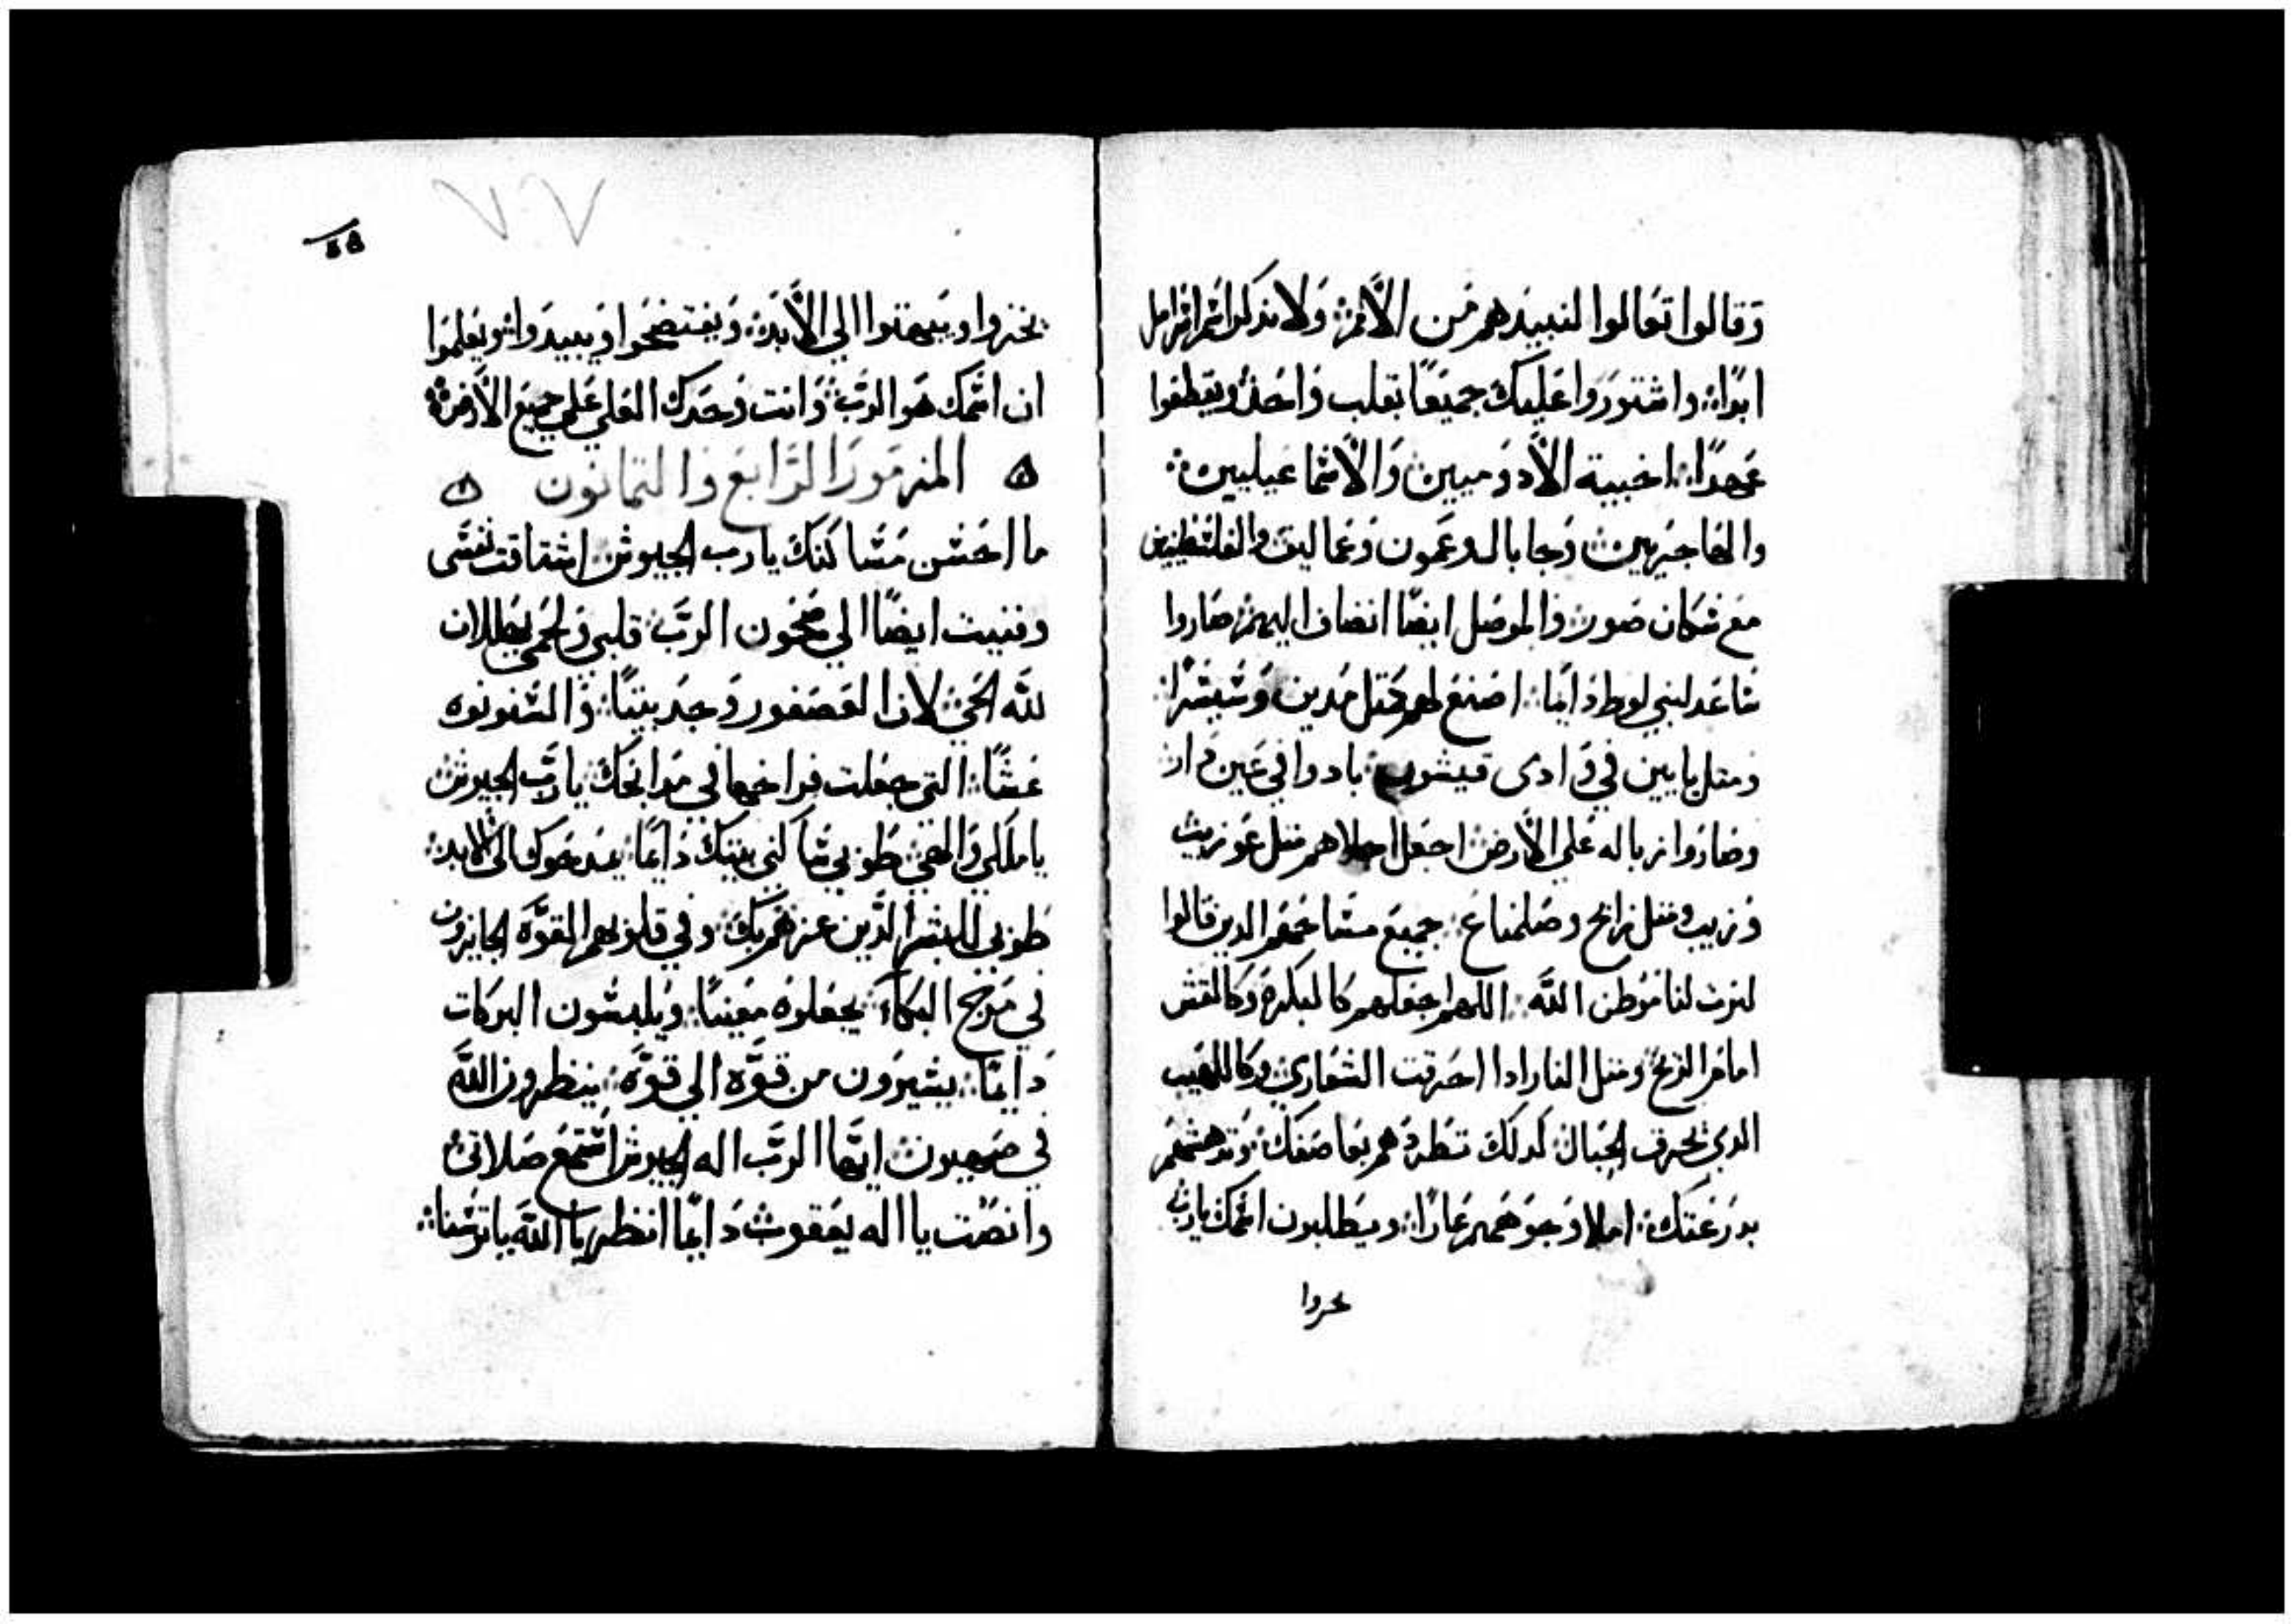 وقالوا تعالوا لنبيدهم من الأمم ولا يذكر اسم اسرايل
ابدًا واشتوروا عليك جميعًا بقلب واحد ويقطعوا
عهدًا اخبية الأدوميين والأسماعيليين
والهاجريين وجابال وعمون وعماليق والفلسطينين
مع سكان صور والموصل ايضًا انضاف اليهم صاروا
ساعد لبني لوط دايمًا اصنع لهم كمثل مدين وسيسرا
ومثل يابين في وادى قيشون بادوا في عين دار
وصاروا زباله على الأرض اجعل اجلاهم مثل عوزيب
وزريب ومثل زابح وصلمناع جميع مسامعهم الدين قالوا
لنرث لنا موطن الله اللهم اجعلهم كالبكره وكالقش
امام الريح ومثل النار ادا احرقت الشعارى وكاللهيب
الدي يحرق الجبال كدلك تطردهم بعاصفك وتدهشهم
بدرعتك املا وجوههم عارًا ويطلبون اسمك يارب
يحزوا
٧٧
يخزوا ويبهتوا الي الأبد ويفتضحوا ويبيدوا ويعلموا
ان اسمك هو الرب وانت وحدك العلي علي جميع الأرض
المزمور الرابع والتمانون
ما احسن مساكنك يارب الجيوش اشتاقت نفسى
وفنيت ايضًا الي صحون الرب قلبي ولحمي يهللان
لله الحي لان العصفور وجد بيتًا والسنونوه
عشًا التي جعلت فراخها في مدابحك يارب الجيوش
ياملكي والهي طوبي ساكني بيتك دايمًا يمدحوك الى الابد
طوبي للبشر الدين عزهم بك وفي قلوبهم القوه الجايزون
في مرج البكاء يجعلوه معينًا ويلبسون البركات
دايمًا يسيرون من قوه الي قوه ينظرون الله
في صهيون ايها الرب اله الجيوش استمع صلاتي
وانصت يا اله يعقوب دايمًا انظر يا الله ياترسنا